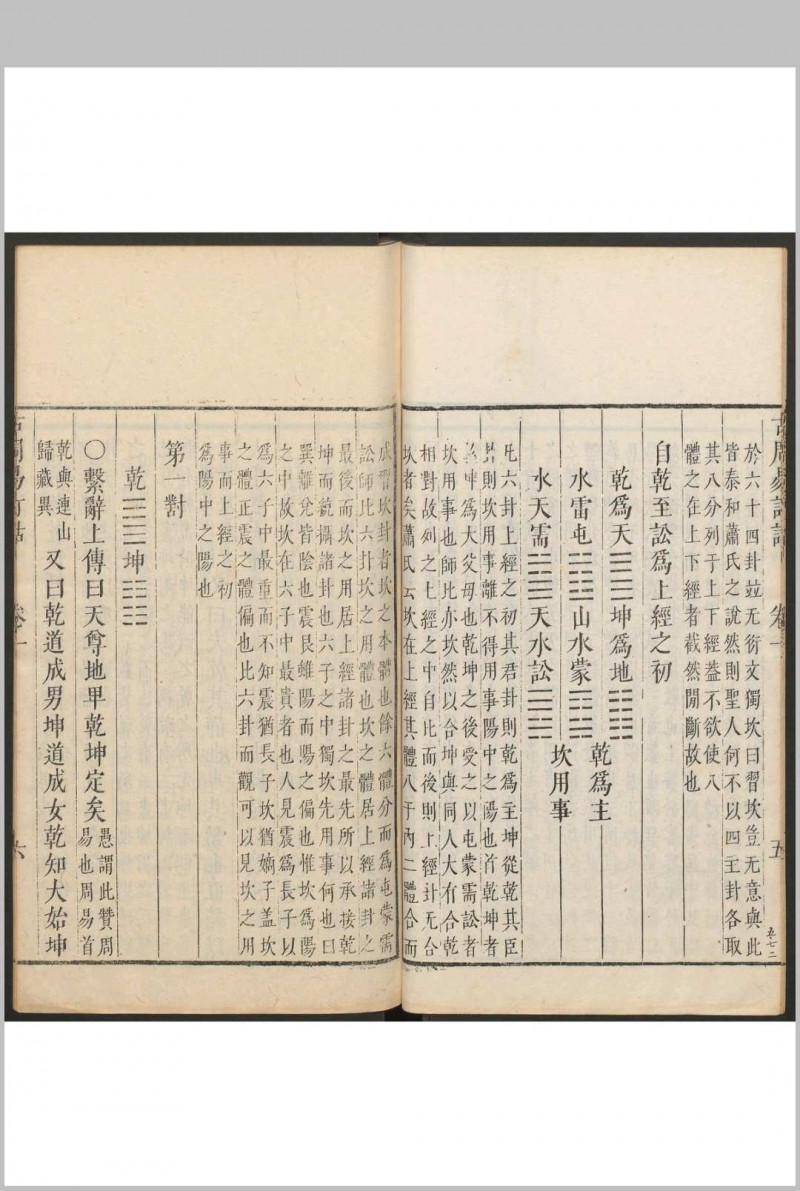 於六十四卦竝无衍文獨坎曰習坎豈无意與此
皆泰和蕭氏之說然則聖人何不以四主卦各取
其八分列于上下經葢不欲使八
體之在上下經者截然閒斷故也
自乾至訟爲上經之初
乾爲天 ䷀ 坤爲地 ䷁ 乾爲主
水雷屯 ䷂ 山水蒙 ䷃
水天需 ䷄ 天水訟 ䷅ 坎用事
六卦上經之初其君卦則乾爲主坤從乾其臣
則坎用事離不得用事陽中之陽也首乾坤者
坤爲大父母也乾坤之後受之以屯蒙需訟者
坎用事也師比亦坎然以合坤與同人大有合乾
相對故列之上經之中自比而後則上經卦无合
坎者矣蕭氏云坎在上經其體八于內二體合而
成習坎卦者坎之本體也餘六體分而爲屯蒙需
訟師比六卦坎之用體也坎之體居上經諸卦之
最後而坎之用居上經諸卦之最先所以承接乾
坤而統攝諸卦也六子之中獨坎先用事何也曰
巽離兌皆陰也震艮雖陽而陽之偏也惟坎爲陽
之中故坎在六子中最貴者也人見震爲長子以
爲六子中最重而不知震猶長子坎猶嫡子葢坎
之體正震之體偏也比六卦而觀可以見坎之用
事而上經之初
爲陽中之陽也
第一對
乾 ䷀ 坤 ䷁
〇繫辭上傳曰天尊地卑乾坤定矣愚謂此贊周
易也周易首
乾與連山
歸藏異
又曰乾道成男坤道成女乾知大始坤
卷一
五
五七二
卷一
六